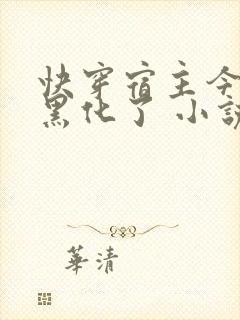 快穿宿主今
黑化了 小説
華清